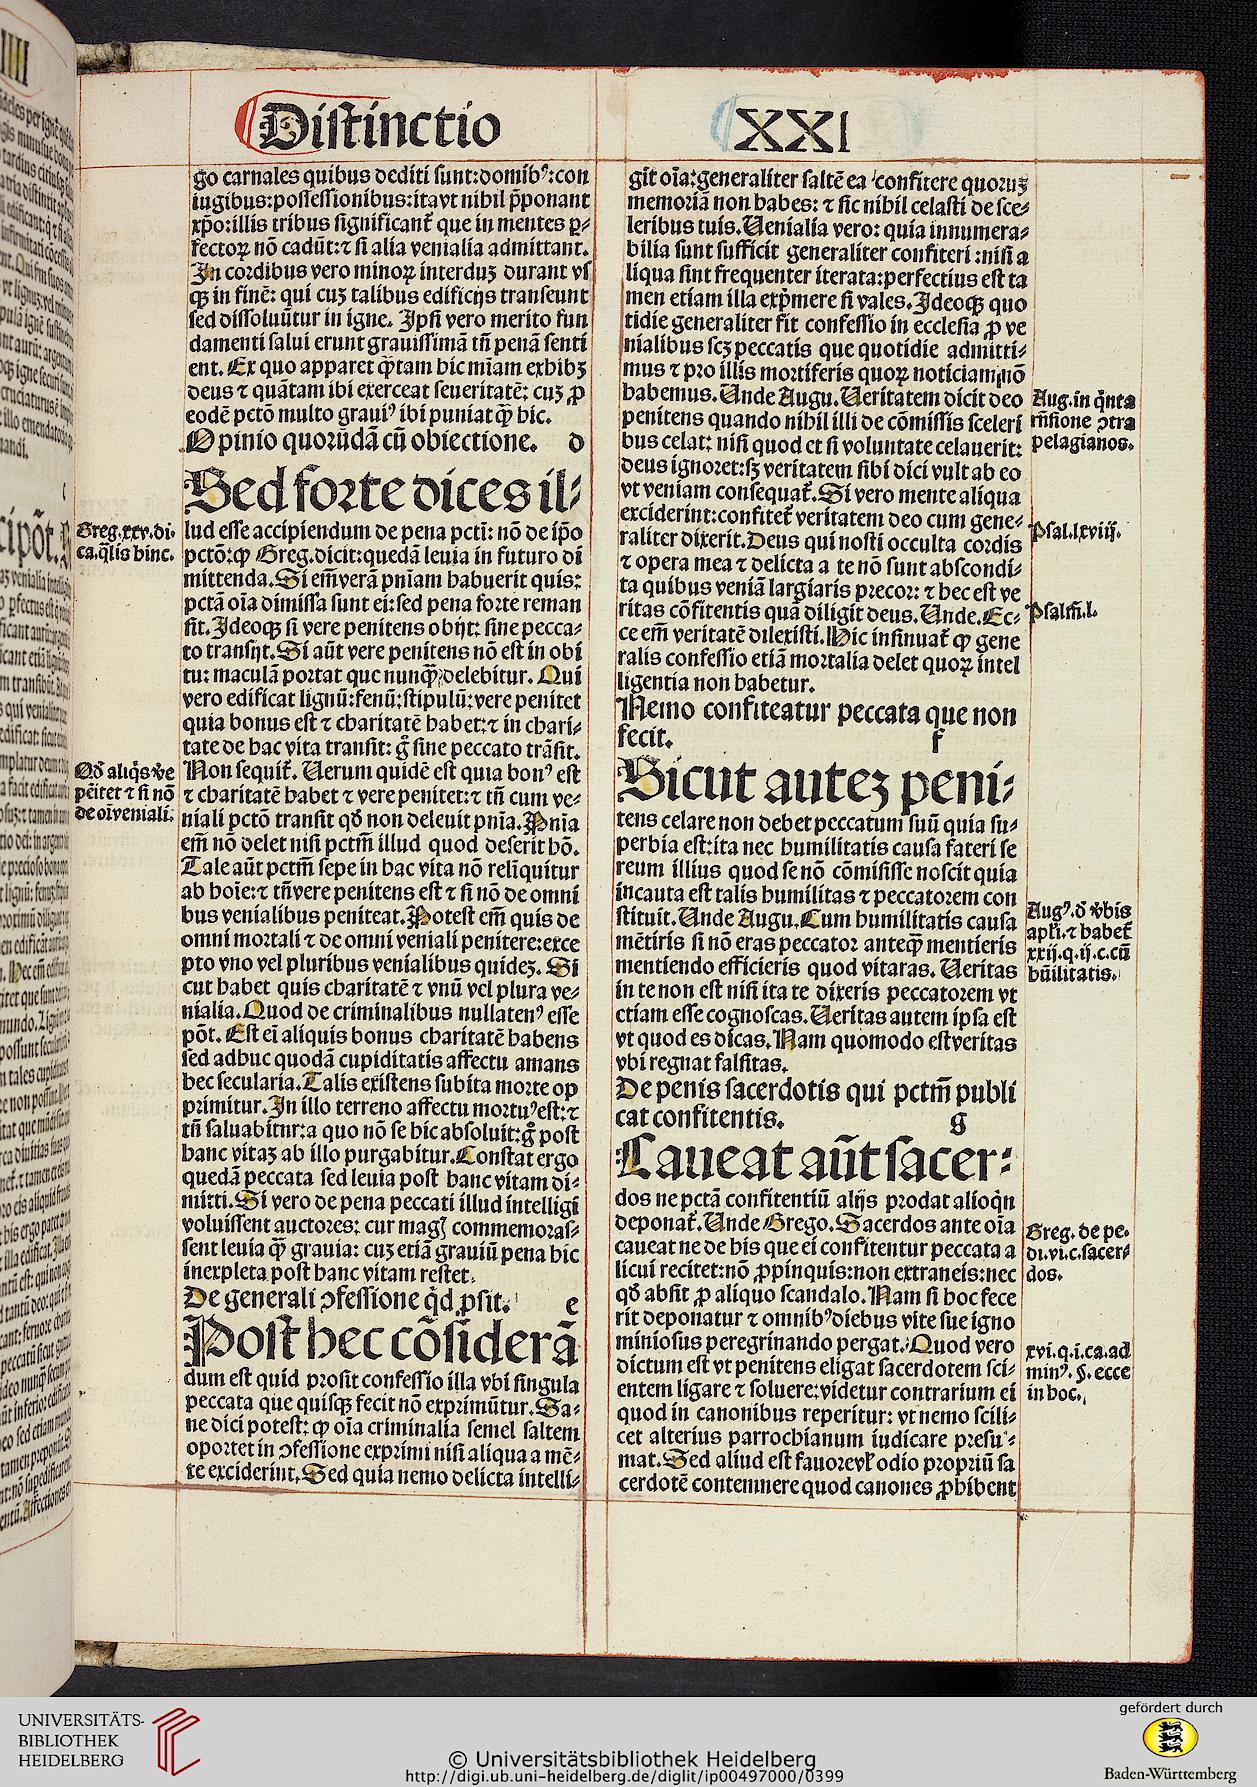 Distinctio
XXI
go carnales quibus dediti sunt:domibꝰ:con
iugibus:possessionibus:itavt nihil p̄ponant
xp̄o:illis tribus significant᷑ que in mentes ꝑ-
fectoꝝ nō cadūt:⁊ si alia venialia admittant.
In cordibus vero minoꝝ interduꝫ durant vs
qꝫ in finē: qui cuꝫ talibus edificijs transeunt
sed dissoluūtur in igne. Ipsi vero merito fun
damenti salui erunt grauissimā tn̄ penā senti
ent. Ex quo apparet q̄tam hic mīam exhibꝫ
deus ⁊ quātam ibi exerceat seueritatē: cuꝫ ꝓ
eodē pctō multo grauiꝰ ibi puniat qꝫ hic.
Opinio quorūdā cū obiectione. d
Sed forte dices il-
lud esse accipiendum de pena pcti: nō de ip̄o
pctō:qꝫ Greg.dicit:quedā leuia in futuro di
mittenda.Si em̄verā pn̄iam habuerit quis:
pctā oīa dimissa sunt ei:sed pena forte reman
sit.Ideoqꝫ si vere penitens obijt: sine pecca-
to transijt.Si aūt vere penitens nō est in obi
tu: maculā portat que nunqꝫ delebitur. Qui
vero edificat lignū:fenū:stipulū:vere penitet
quia bonus est ⁊ charitatē habet:⁊ in chari-
tate de hac vita transit: g̊ sine peccato trāsit.
Non sequit᷑. Uerum quidē est quia bonꝰ est
⁊ charitatē habet ⁊ vere penitet:⁊ tn̄ cum ve-
niali pctō transit qd̄ non deleuit pn̄ia.Pn̄ia
em̄ nō delet nisi pctm̄ illud quod deserit hō.
Tale aūt pctm̄ sepe in hac vita nō relīquitur
ab hoīe:⁊ tn̄vere penitens est ⁊ si nō de omni
bus venialibus peniteat.Potest em̄ quis de
omni mortali ⁊ de omni veniali penitere:exce
pto vno vel pluribus venialibus quideꝫ. Si
cut habet quis charitatē ⁊ vnū vel plura ve-
nialia.Quod de criminalibus nullatenꝰ esse
pōt. Est ei aliquis bonus charitatē habens
sed adhuc quodā cupiditatis affectu amans
hec secularia.Talis existens subita morte op
primitur.In illo terreno affectu mortuꝰest:⁊
tn̄ saluabitur:a quo nō se hic absoluit:g̊ post
hanc vitaꝫ ab illo purgabitur.Constat ergo
quedā peccata sed leuia post hanc vitam di-
mitti.Si vero de pena peccati illud intelligi
voluissent auctores: cur magꝭ commemoras-
sent leuia qꝫ grauia: cuꝫ etiā grauiū pena hic
inexpleta post hanc vitam restet.
De generali ↄfessione q̇d ꝓsit. e
Post hec cōsiderā
dum est quid prosit confessio illa vbi singula
peccata que quisqꝫ fecit nō exprimūtur.Sa-
ne dici potest: qꝫ oīa criminalia semel saltem
oportet in ↄfessione exprimi nisi aliqua a mē-
te exciderint.Sed quia nemo delicta intelli-
git oīa:generaliter saltē ea confitere quoruꝫ
memoriā non habes: ⁊ sic nihil celasti de sce-
leribus tuis.Uenialia vero: quia innumera-
bilia sunt sufficit generaliter confiteri :nisi a
liqua sint frequenter iterata:perfectius est ta
men etiam illa exp̄mere si vales.Ideoqꝫ quo
tidie generaliter fit confessio in ecclesia ꝓ ve
nialibus scꝫ peccatis que quotidie admitti-
mus ⁊ pro illis mortiferis quoꝝ noticiam nō
habemus.Unde Augu.Ueritatem dicit deo
penitens quando nihil illi de cōmissis sceleri
bus celat: nisi quod et si voluntate celauerit:
deus ignoret:sꝫ veritatem sibi dici vult ab eo
vt veniam consequat᷑.Si vero mente aliqua
exciderint:confitet᷑ veritatem deo cum gene-
raliter dixerit.Deus qui nosti occulta cordis
⁊ opera mea ⁊ delicta a te nō sunt abscondi-
ta quibus veniā largiaris precor: ⁊ hec est ve
ritas cōfitentis quā diligit deus.Unde.Ec-
ce em̄ veritatē dilexisti.Hic insinuat᷑ qꝫ gene
ralis confessio etiā mortalia delet quoꝝ intel
ligentia non habetur.
Nemo confiteatur peccata que non
fecit. f
Sicut auteꝫ peni-
tens celare non debet peccatum suū quia su-
perbia est:ita nec humilitatis causa fateri se
reum illius quod se nō cōmisisse noscit quia
incauta est talis humilitas ⁊ peccatorem con
stituit.Unde Augu.Cum humilitatis causa
mētiris si nō eras peccator anteqꝫ mentieris
mentiendo efficieris quod vitaras. Ueritas
in te non est nisi ita te dixeris peccatorem vt
etiam esse cognoscas.Ueritas autem ipsa est
vt quod es dicas.Nam quomodo estveritas
vbi regnat falsitas.
De penis sacerdotis qui pctm̄ publi
cat confitentis. g
Caueat aūt sacer-
dos ne pctā confitentiū alijs prodat alioq̇n
deponat᷑.Unde Grego.Sacerdos ante oīa
caueat ne de his que ei confitentur peccata a
licui recitet:nō ꝓpinquis:non extraneis:nec
qd̄ absit ꝓ aliquo scandalo.Nam si hoc fece
rit deponatur ⁊ omnibꝰdiebus vite sue igno
miniosus peregrinando pergat.Quod vero
dictum est vt penitens eligat sacerdotem sci-
entem ligare ⁊ soluere:videtur contrarium ei
quod in canonibus reperitur: vt nemo scili-
cet alterius parrochianum iudicare presu-
mat.Sed aliud est fauorevł odio propriū sa
cerdotē contemnere quod canones ꝓhibent
Greg.xxv.di-
ca.q̄lis hinc.
Qd̄ aliq̇s v̄e
pēitet ⁊ si nō
de oīveniali.
Aug.in q̇nta
rn̄sione ↄtra
pelagianos.
Psal.lxviij.
Psalm̄.l.
Augꝰ.d̄ v̄bis
apl̄i.⁊ habet᷑
xxij.q.ij.c.cū
hūilitatis.
Greg. de pe-
di.vi.c.sacer-
dos.
xvi.q.i.ca.ad
minꝰ.§.ecce
in hoc.
UNIVERSITÄTS-
BIBLIOTHEK
HEIDELBERG
© Universitätsbibliothek Heidelberg
http://digi.ub.uni-heidelberg.de/diglit/ip00497000/0399
gefördert durch
Baden-Württemberg